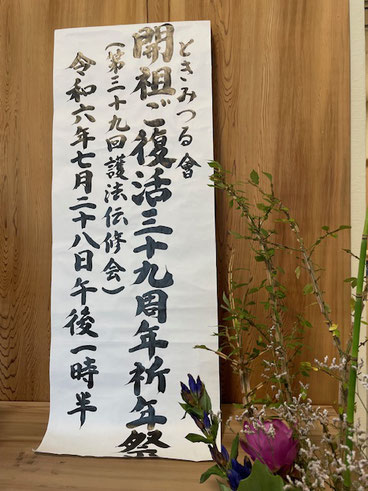 ときみつる會
開祖ご復活三十九周年祈年祭
(第三十九回護法伝修会)
令和六年七月二十八日午後一時半